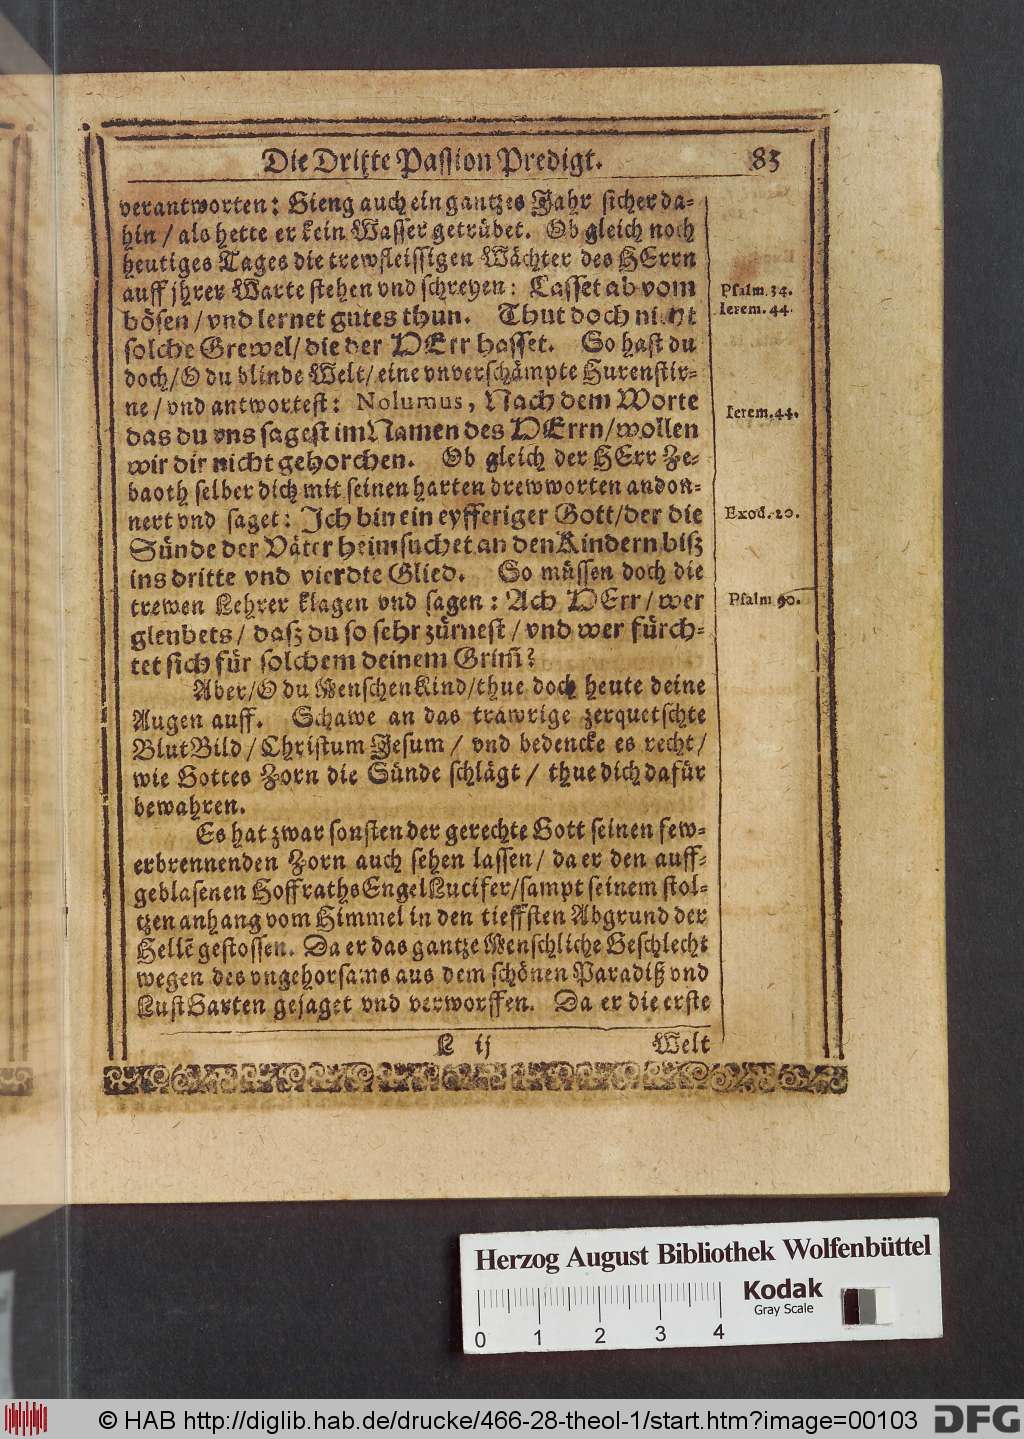 Die Dritte Passion Predigt. 83
verantworten: Gieng auch ein gantzes Jahr sicher da-
hin / als hette er kein Wasser getrübet. Ob gleich noch
heutiges Tages die trewfleissigen Wächter des HErrn
auff jhrer Warte stehen vnd schreyen: Lasset ab vom
bösen / vnd lernet gutes thun. Thut doch nicht
solche Grewel / die der HErr hasset. So hast du
doch / O du blinde Welt / eine vnverschämpte Hurenstir-
ne / vnd antwortest: Nolumus, Nach dem Worte
das du vns sagest im Namen des HErrn / wollen
wir dir nicht gehorchen. Ob gleich der HErr Ze-
baoth selber dich mit seinen harten drewworten andon-
nert vnd saget: Ich bin ein eyfferiger Gott / der die
Sünde der Väter heimsuchet an den Kindern biß
ins dritte vnd vierdte Glied. So müssen doch die
trewen Lehrer klagen vnd sagen: Ach HErr / wer
gleubets / daß du so sehr zürnest / vnd wer fürch-
tet sich für solchem deinem Grim̄?
Aber / O du MenschenKind / thue doch heute deine
Augen auff. Schawe an das trawrige zerquetschte
BlutBild / Christum Jesum / vnd bedencke es recht /
wie Gottes Zorn die Sünde schlägt / thue dich dafür
bewahren.
Es hat zwar sonsten der gerechte Gott seinen few-
erbrennenden Zorn auch sehen lassen / da er den auff-
geblasenen HoffrathsEngel Lucifer / sampt seinem stol-
tzen anhang vom Himmel in den tieffsten Abgrund der
Hellē gestossen. Da er das gantze Menschliche Geschlecht
wegen des vngehorsams aus dem schönen Paradiß vnd
LustGarten gejaget vnd verworffen. Da er die erste
L ij Welt
Psalm. 34.
Ierem. 44.
Ierem. 44.
Exod. 20.
Psalm 90.
Herzog August Bibliothek Wolfenbüttel
Kodak
Gray Scale
0 1 2 3 4
© HAB http://diglib.hab.de/drucke/466-28-theol-1/start.htm?image=00103
DFG